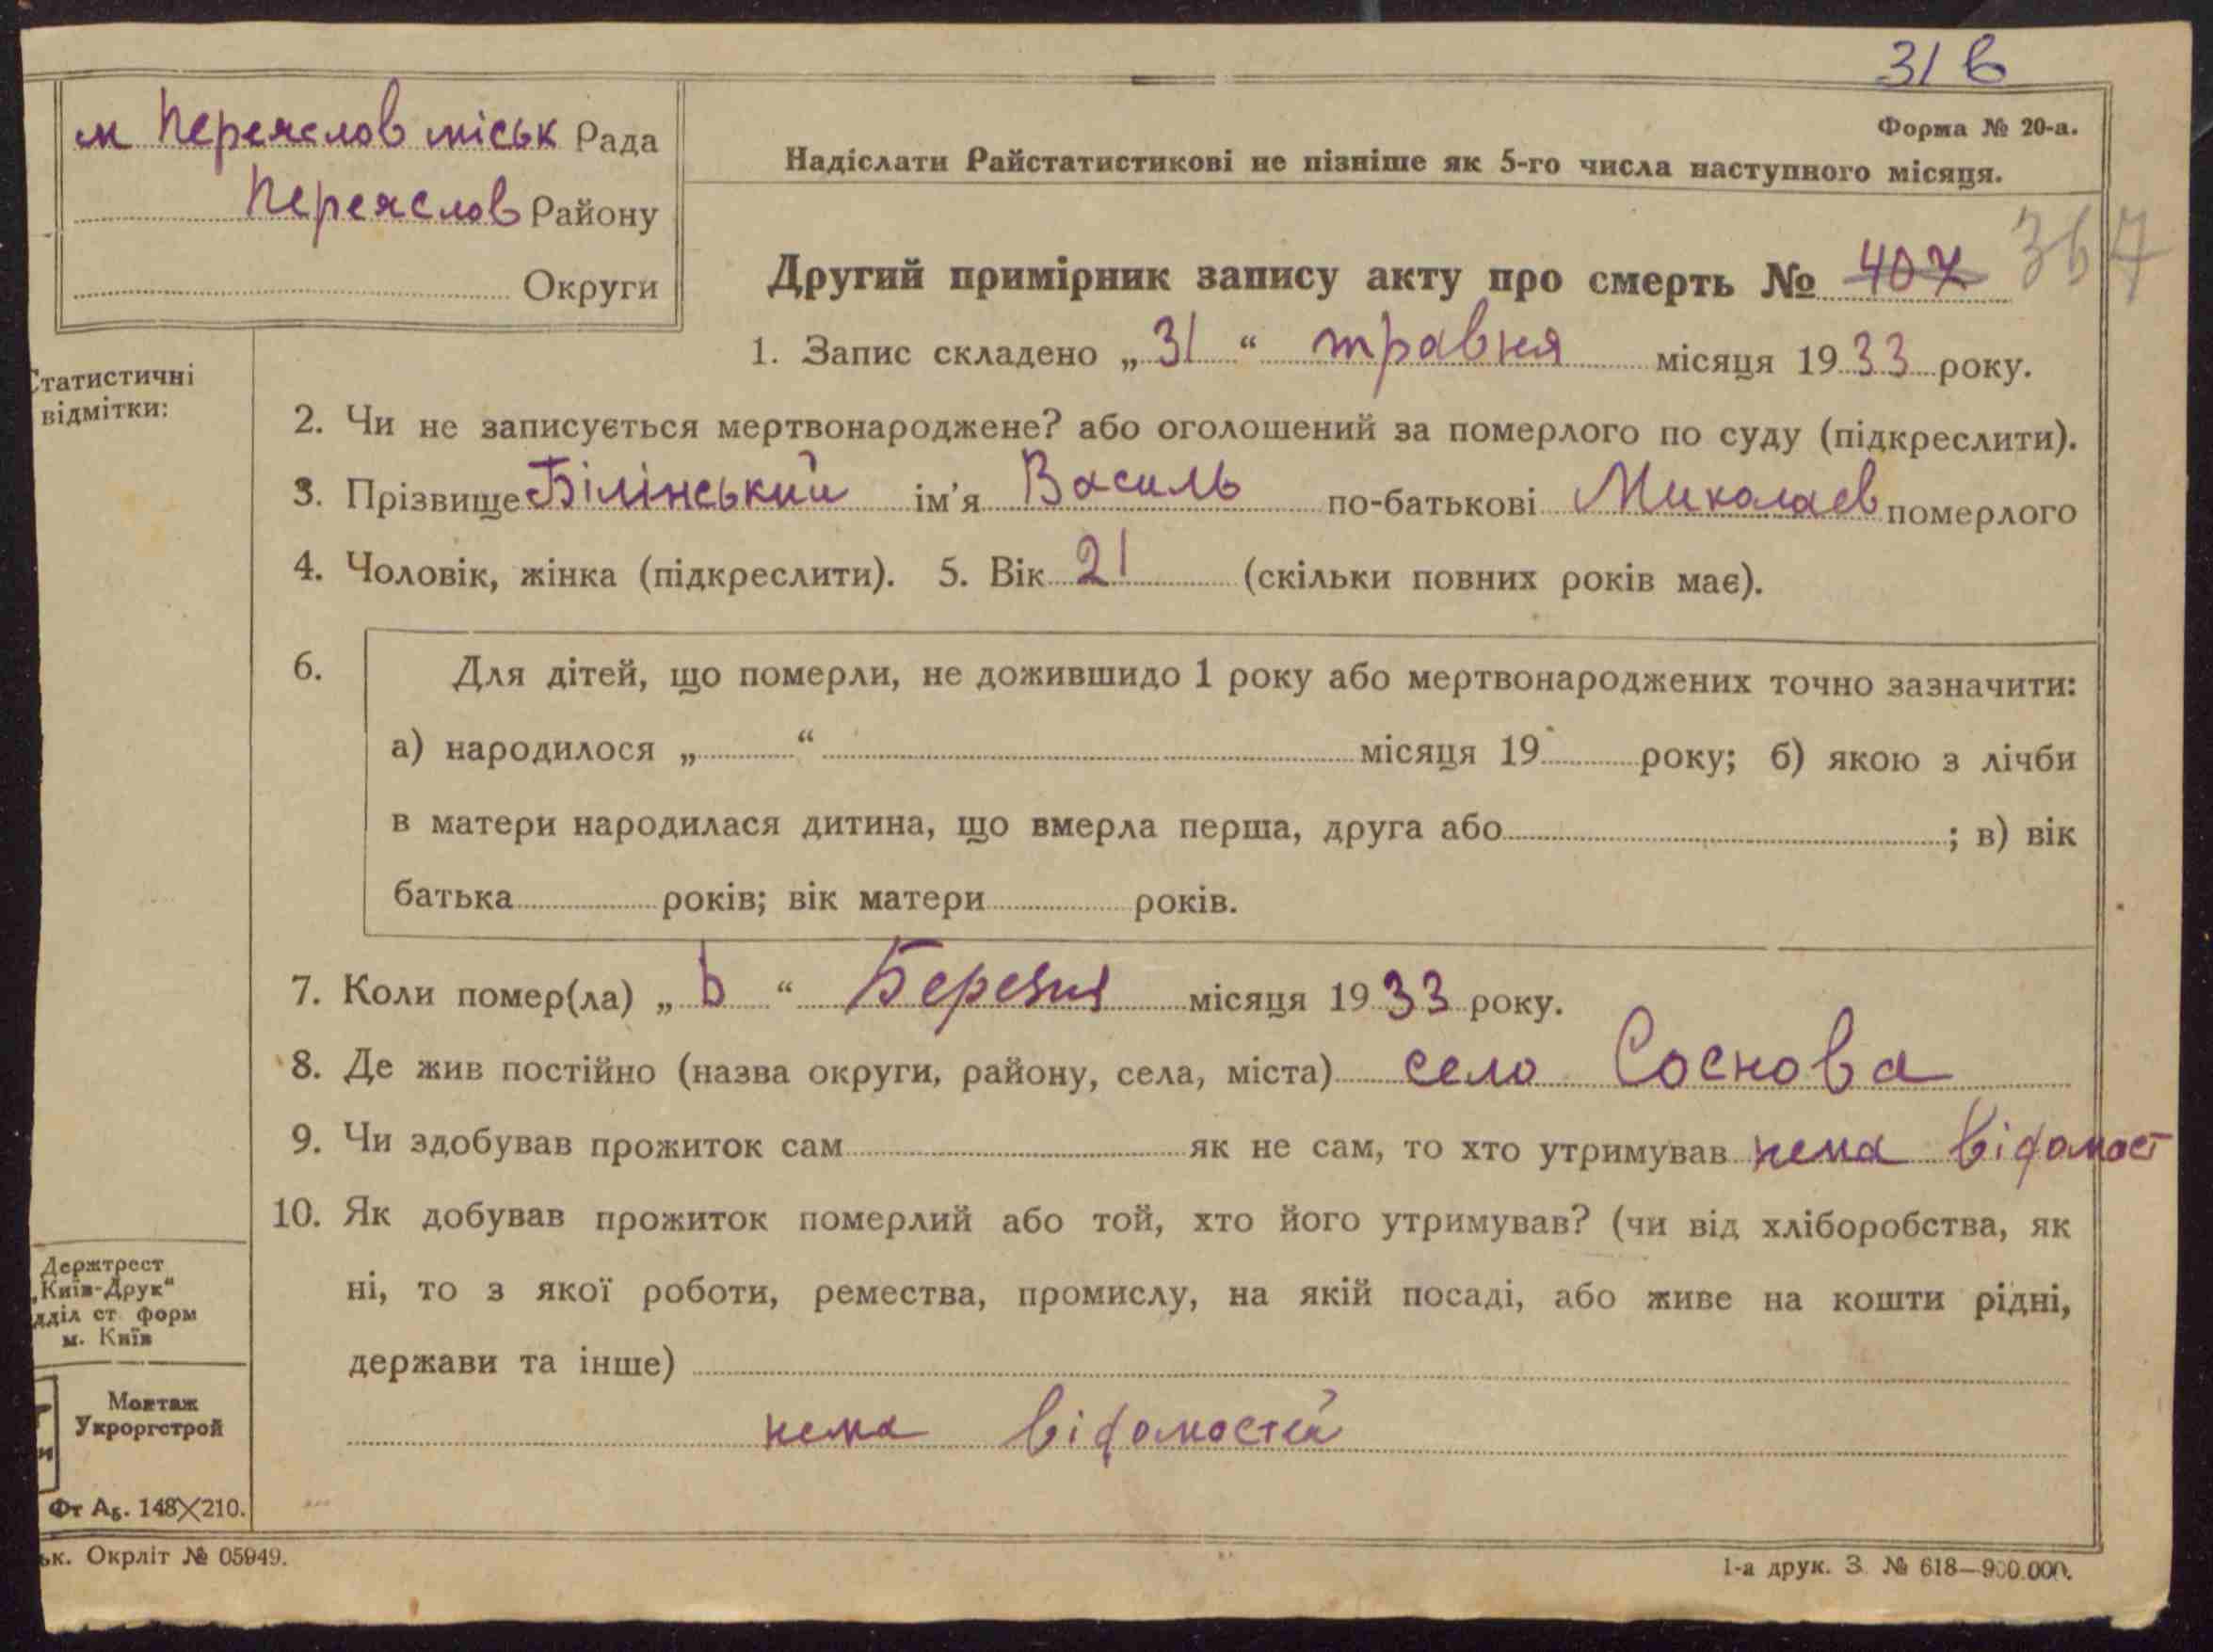 31 в
м Переяслов міськ Рада
Переяслов Району
Округи
Форма № 20-а.
Надіслати Райстатистикові не пізніше як 5-го числа наступного місяця.
Другий примірник запису акту про смерть № 407 367
1. Запис складено „31“ травня місяця 1933 року.
Статистичні
відмітки:
2. Чи не записується мертвонароджене? або оголошений за померлого по суду (підкреслити).
3. Прізвище Білінський ім'я Василь по-батькові Миколаєв померлого
4. Чоловік, жінка (підкреслити). 5. Вік 21 (скільки повних років має).
6. Для дітей, що померли, не дожившидо 1 року або мертвонароджених точно зазначити:
а) народилося „ “ місяця 19 року; б) якою з лічби
в матери народилася дитина, що вмерла перша, друга або ; в) вік
батька років; вік матери років.
7. Коли помер(ла) „ “ Березня місяця 1933 року.
8. Де жив постійно (назва округи, району, села, міста) село Соснова
9. Чи здобував прожиток сам як не сам, то хто утримував нема відомост
10. Як добував прожиток померлий або той, хто його утримував? (чи від хліборобства, як
ні, то з якої роботи, ремества, промислу, на якій посаді, або живе на кошти рідні,
держави та інше)
нема відомостей
Держтрест
„Київ-Друк“
дділ ст. форм
м. Київ
Монтаж
Укроргстрой
Фт А5. 148×210.
ьк. Окрліт № 05949.
1-а друк. З. № 618—900.000.